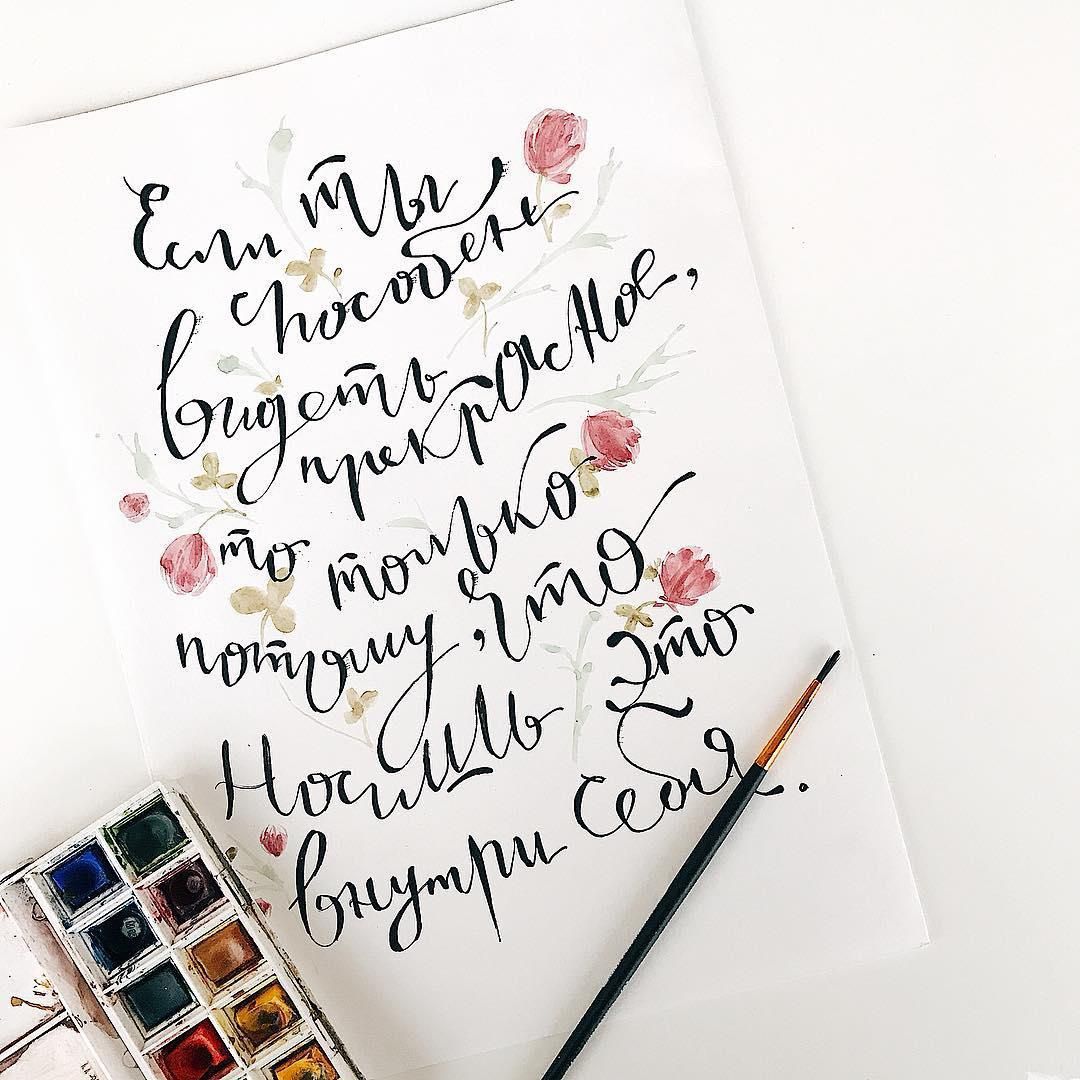 Если ты
способен
видеть
прекрасное,
то только
потому, что
Носишь это
внутри себя.